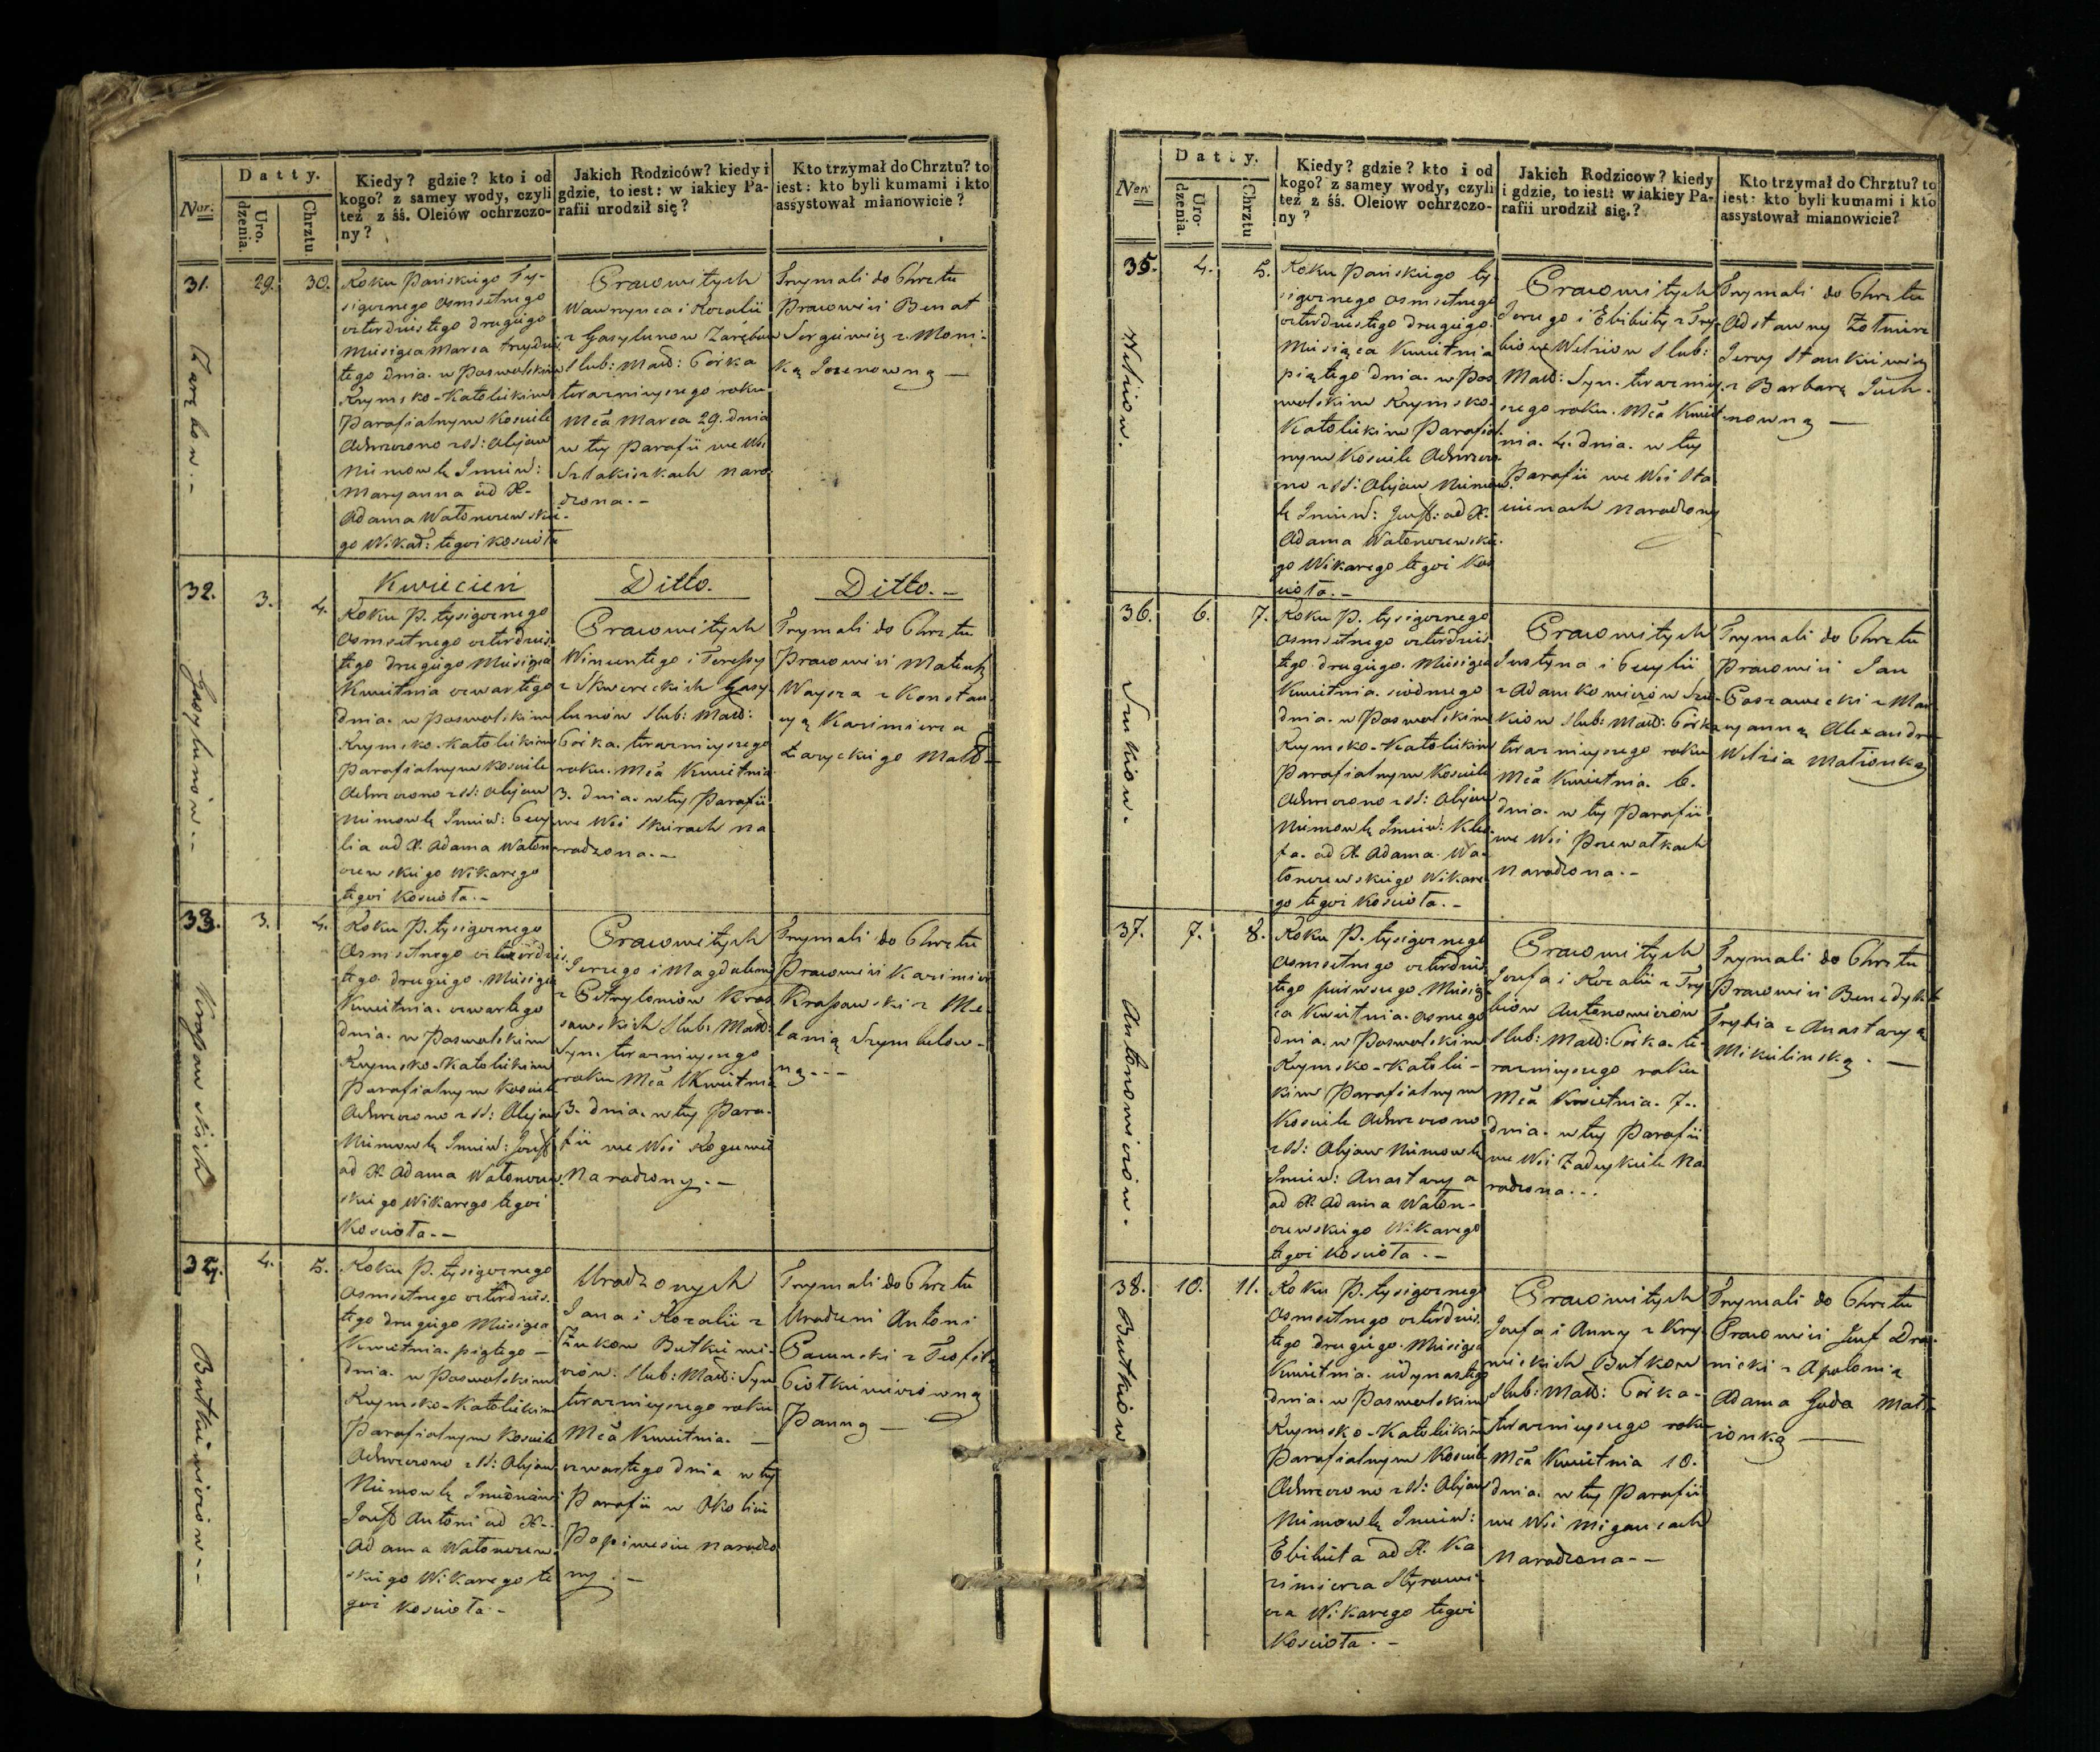 Nor:
Datty.
Uro.
dzenia.
Chrztu
Kiedy? gdzie? kto i od
kogo? z samey wody, czyli
też z śś. Oleiów ochrzczo-
ny?
Jakich Rodziców? kiedy i
gdzie, to iest: w iakiey Pa-
rafii urodził się?
Kto trzymał do Chrztu? to
iest: kto byli kumami i kto
assystował mianowicie?
31.
Zarębow.-
29.
30.
Roku Pańskiego Ty-
siącznego osmsetnego
czterdziestego drugiego
Miesiąca Marca trzydzies
tego dnia. w Poswolskim
Rzymsko-Katolickim
Parafialnym Kosciele
Ochrzczono z SS: Olejow
Niemowlę Imien:
Maryanna od X.
Adama Wałonczewskie-
go Wikar: tegoż Kościoła
Pracowitych
Wawrzynca i Rozalii
z Gasylunow Zarębow
Slub: Małż: Córka
teraznieyszego roku
Mca Marca 29. dnia
w tey Parafii we Wsi
Szłakiszkach naro-
dzona.-
Trzymali do Chrztu
Pracowici Benat
Sergiewicz z Moni-
ką Jozenowną —
32.
Gasylunow.-
3.
4.
Kwiecień
Roku P. tysiącznego
Osmsetnego czterdzies
tego drugiego Miesiąca
Kwietnia czwartego
dnia. w Poswolskim
Rzymsko-Katolickim
Parafialnym Kosciele
Ochrzczono z SS: Olejow
Niemowlę Imien: Cecy
lia od X. Adama Wałon
czewskiego Wikarego
tegoż Kościoła.-
Ditto.
Pracowitych
Wincentego i Teressy
z Skwereckich Gasy
lunów Slub: Małż:
Córka. teraznieyszego
roku. Mca Kwietnia
3. dnia. w tey Parafii
we Wsi Skirach na
rodzona.-
Ditto.-
Trzymali do Chrztu
Pracowici Mateusz
Wayza z Konstan
cyą Kazimierza
Zaryckiego Małż-
33.
Krassawskich
3.
4.
Roku P. tysiącznego
Osmsetnego czterdzies
tego drugiego. Miesiąca
Kwietnia. czwartego
dnia. w Poswolskim
Rzymsko-Katolickim
Parafialnym Kosciele
Ochrzczono z SS: Olejow
Niemowlę Imien: Jozeff
od X. Adama Wałonczew
skiego Wikarego tegoż
Kościoła.-
Pracowitych
Jerzego i Magdaleny
z Petryloniow Kras
sawskich Slub: Małż:
Syn. teraznieyszego
roku Mca Kwietnia
3. dnia. w tey Para-
fii we Wsi
Narodzony.-
Trzymali do Chrztu
Pracowici Kazimierz
Krassawski z Me-
lanią Szymbelow-
ną.--
34.
Butkiewiczow.-
4.
5.
Roku P. tysiącznego
Osmsetnego czterdzies-
tego drugiego Miesiąca
Kwietnia. piątego —
dnia. w Poswolskim
Rzymsko-Katolickim
Parafialnym Kosciele
Ochrzczono z SS: Olejow
Niemowlę Imionami
Jozeff Antoni od X.
Adama Wałonczew-
skiego Wikarego te
goż Kościoła.-
Urodzonych
Jana i Rozalii z
Żukow Butkiewi-
czów. Slub: Małż: Syn
teraznieyszego roku
Mca Kwietnia. —
czwartego dnia w tey
Parafii w Okolicy
Popiwesiu narodzo
ny.-
Trzymali do Chrztu
Urodzeni Antoni
z Teofilą
Ciotkiewiczówną
Panną —
Nor:
Datty.
Uro-
dzenia.
Chrztu
Kiedy? gdzie? kto i od
kogo? z samey wody, czyli
też z śś. Oleiow ochrzczo-
ny?
Jakich Rodzicow? kiedy
i gdzie, to iest: w iakiey Pa-
rafii urodził się.?
Kto trzymał do Chrztu? to
iest: kto byli kumami i kto
assystował mianowicie?
35.
Weliow.
4.
5.
Roku Pańskiego ty-
siącznego osmsetnego
czterdziestego drugiego.
Miesiąca Kwietnia
piątego dnia. w Pos
wolskim Rzymsko-
Katolickim Parafial-
nym Kosciele Ochrzczo-
no z SS: Olejow Niemow
lę Imien: Jozeff: od X.
Adama Wałonczewskie-
go Wikarego tegoż Koś
cioła.-
Pracowitych
Jerzego i Elżbiety z Try-
biow Weliiow Slub:
Małż: Syn. terazniey-
szego roku. Mca Kwiet-
nia. 4. dnia. w tey
Parafii we Wsi Sta
cienach Narodzony
Trzymali do Chrztu
Odstawny Żołnierz
Jerzy Stankiewicz
z Barbarą Juch-
nowną —
36.
Szukiow.
6.
7.
Roku P. tysiącznego
Osmsetnego czterdzies
tego drugiego. Miesiąca
Kwietnia. siodmego
dnia. w Poswolskim
Rzymsko-Katolickim
Parafialnym Kosciele
Ochrzczono z SS: Olejow
Niemowlę Imien: Kle-
fa. od X. Adama Wa-
łonczewskiego Wikare
go tegoż Kościoła.-
Pracowitych
Justyna i Cecylii
z Adamkowiczów Szu-
kiow Slub: Małż: Córka
teraznieyszego roku
Mca Kwietnia. 6.
dnia. w tey Parafii
we Wsi Przewałkach
Narodzona.-
Trzymali do Chrztu
Pracowici Jan
Poszawecki z Ma
ryanną Alexandra
Welzia Małżonką
37.
Antonowiczow.
7.
8.
Roku P. tysiącznego
Osmsetnego czterdzies
tego pierwszego Miesią
ca Kwietnia. osmego
dnia. w Poswolskim
Rzymsko-Katolic-
kim Parafialnym
Kosciele Ochrzczono
z SS: Olejow Niemowle
Imien: Anastazya
od X. Adama Wałon-
czewskiego Wikarego
tegoż Kościoła.-
Pracowitych
Jozefa i Rozalii z Try
biow Antonowiczow
Slub: Małż: Córka. te-
raznieyszego roku
Mca Kwietnia. 7.
dnia. w tey Parafii
we Wsi Zadeykiele Na
rodzona...
Trzymali do Chrztu
Pracowici Benedykt
Trybia z Anastazyą
Mikulinską.—
38.
Butkiow
10.
11.
Roku P. tysiącznego
Osmsetnego czterdzies
tego drugiego. Miesiąca
Kwietnia. iedynastego
dnia. w Poswolskim
Rzymsko-Katolickim
Parafialnym Kosciele
Ochrzczono z SS: Olejow
Niemowlę Imien:
Elżbieta od X. Ka
zimierza Styrowi-
cza Wikarego tegoż
Kościoła.-
Pracowitych
Jozefa i Anny z Kry-
wickich Butkow
Slub: Małż: Córka-
teraznieyszego roku
Mca Kwietnia 10.
dnia. w tey Parafii
we Wsi Migancach
Narodzona--
Trzymali do Chrztu
Pracowici Jozef Dra-
nicki z Apolonią
Adama Goda Małż-
żonką —